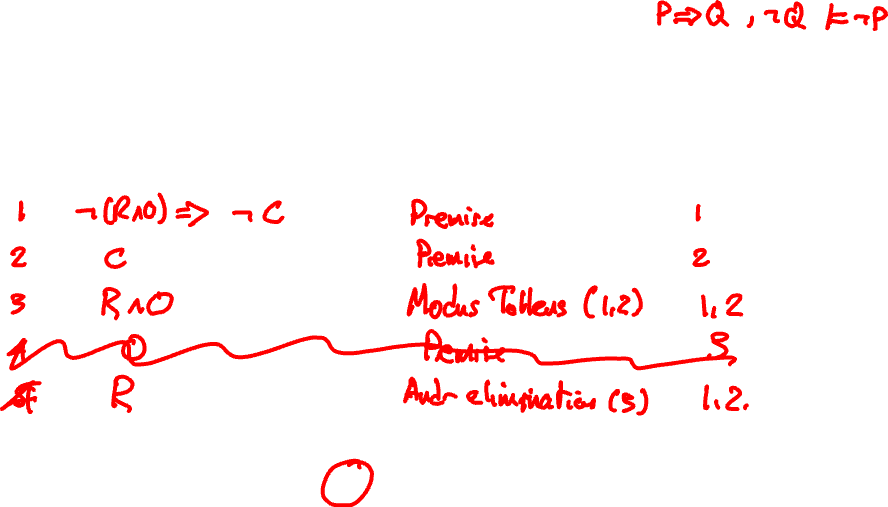 P⇒Q , ¬Q ⊨ ¬P
1 ¬(R∧O) ⇒ ¬C Premise 1
2 C Premise 2
3 R∧O Modus Tollens (1,2) 1,2
4 O Premise 3
R And-elimination (3) 1,2.